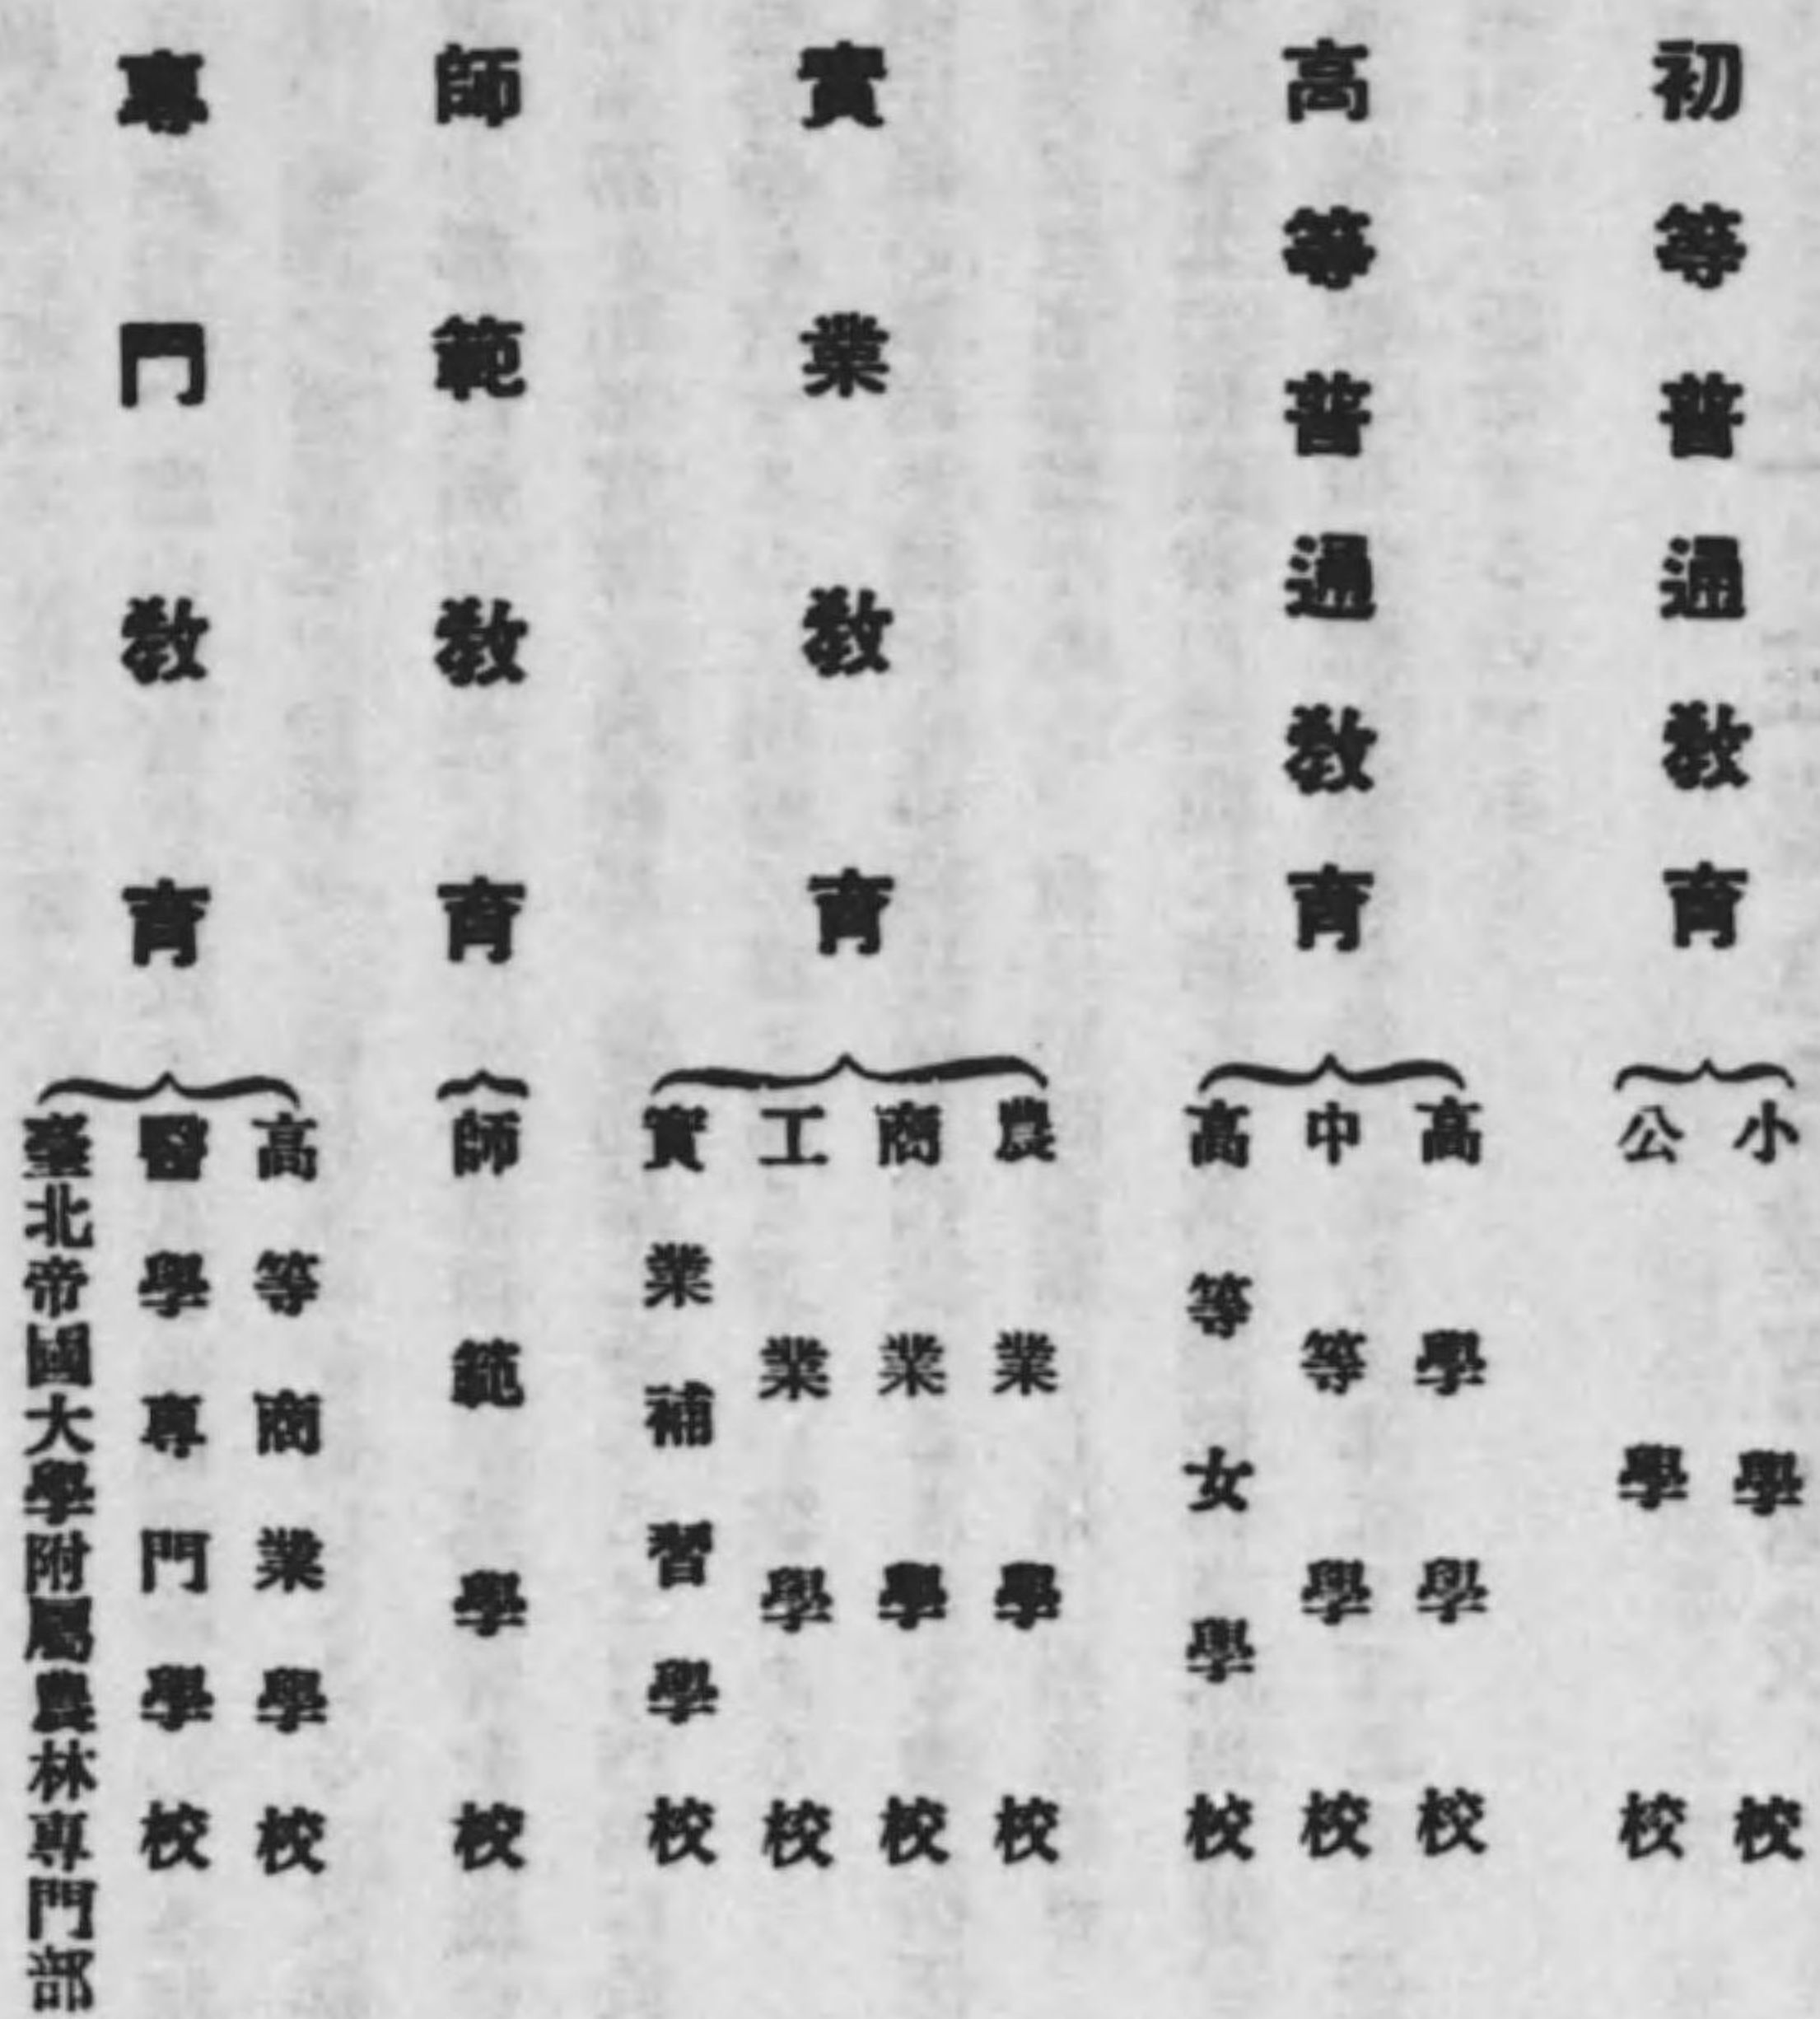 初等普通教育
小學校
公學校
高等普通教育
高學學校
中等學校
高等女學校
實業教育
農業學校
商業學校
工業學校
實業補習學校
師範教育
師範學校
專門教育
高等商業學校
醫學專門學校
臺北帝國大學附屬農林專門部